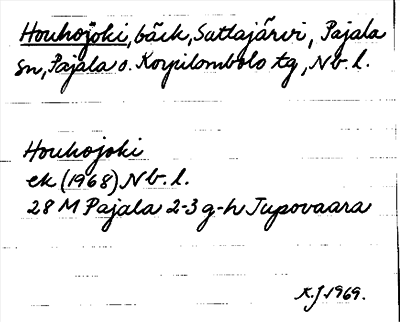 Houkojoki, bäck, Sattajärvi, Pajala
sn, Pajala o. Korpilombolo tg, Nb. l.
Houkojoki
ek (1968) Nb. l.
28 M Pajala 2-3 g-h Jupovaara
K.J 1969.